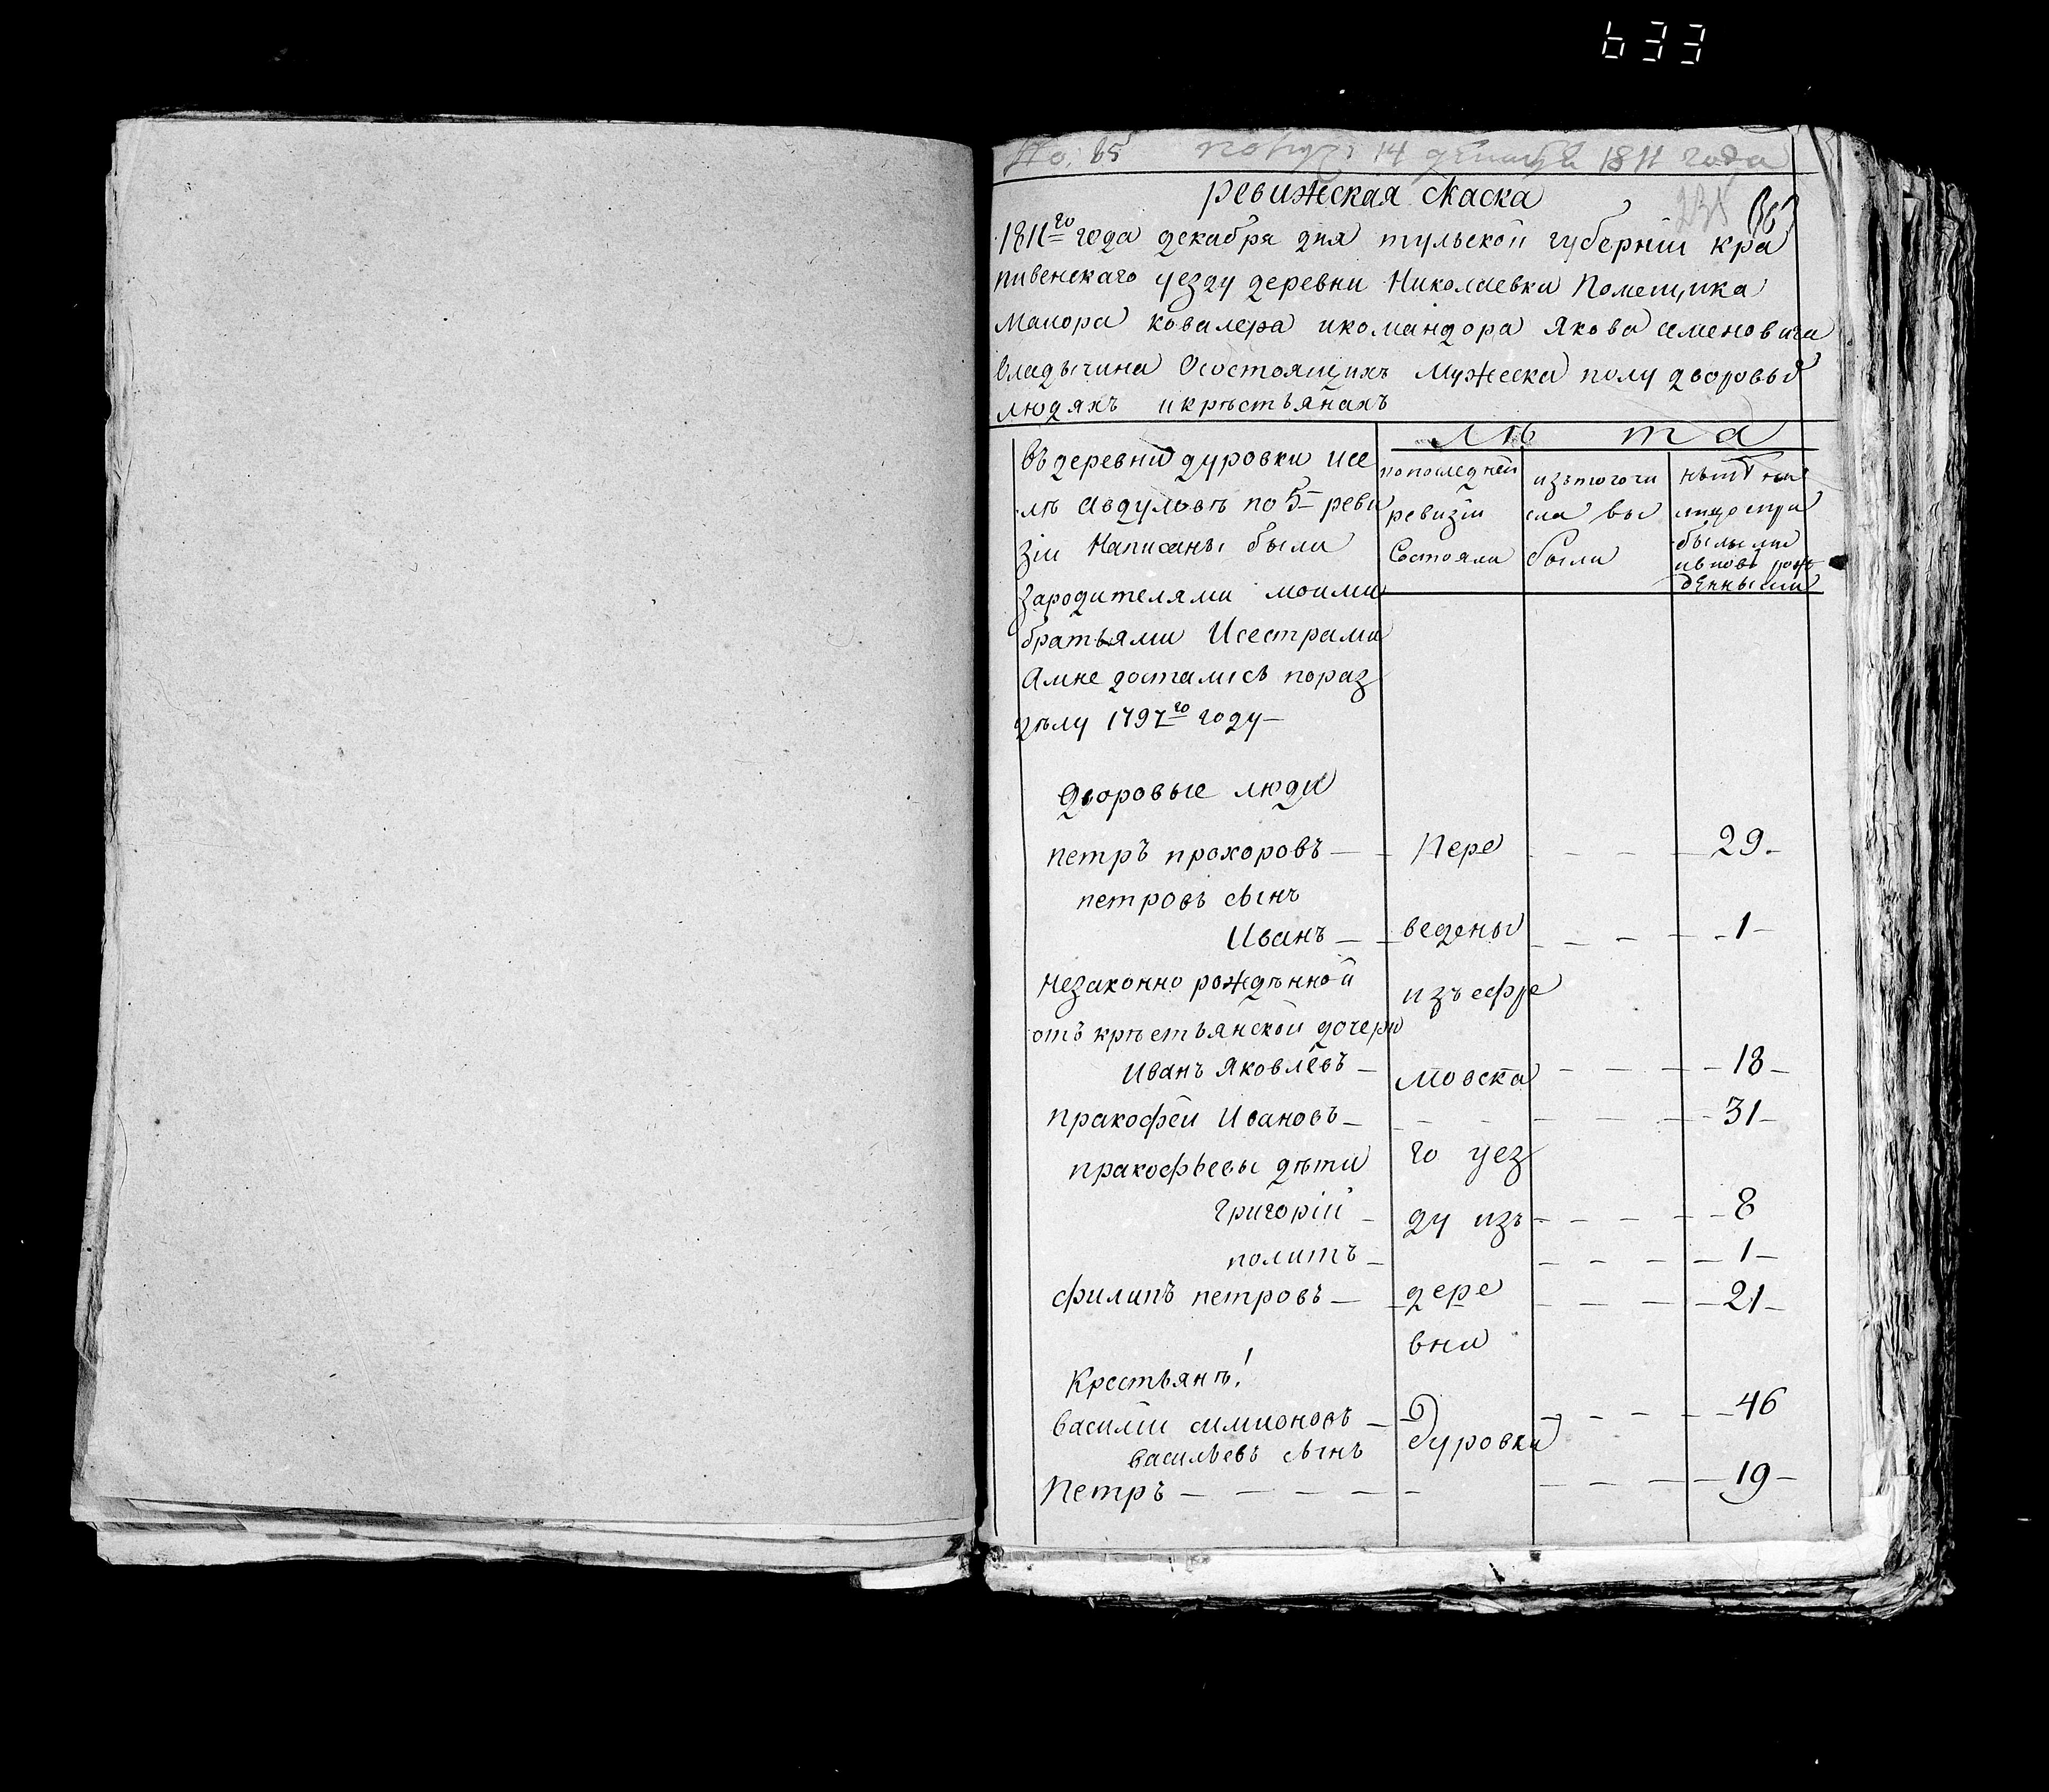 633
No. 65 14 декабря 1811 года
ревижская скаска
1811го года декабря дня тульской губернии кра
пивенскаго уезду деревни Николаевки Помещика
Маиора ковалера икомандора Якова семеновича
Владычина Осостоящихъ мужеска полу дворовы
людяхъ икрѣстьянахъ
лѣ та
въдеревни дуровки исе
лѣ авдуловѣ по 5 реви
зіи Написаны были
зародителями моими
братьями Исестрами
Амне досталисъ пораз
дѣлу 1797го году
попоследней
ревизіи
Состояли
изътогочи
сла вы
были
былыми
ивновь рож
денными
дворовые люди
петръ прохоровъ — Пере — 29
петровъ сынъ
Иванъ — ведены — 1
незаконно рождѣнной изъ ефре
отъ крѣстьянской дочери
Иванъ Яковлевъ — мовска — 18
пракофеи Ивановъ — 31
пракофьевы дѣти го уез
Григоріи — ду изъ — 8
политъ — 1
филипъ петровъ — дере — 21
вни
Крестьянѣ!
василіи симионовъ — 46
васильевъ сынъ дуровки
Петръ — 19